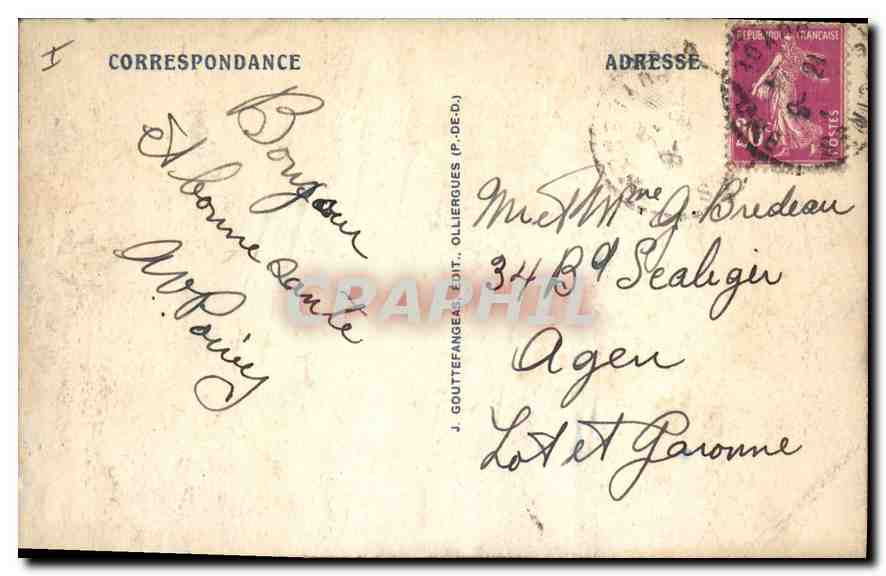 I
CORRESPONDANCE
ADRESSE
REPUBLIQUE FRANCAISE
POSTES
Bonjour
et bonne sante
J. GOUTTEFANGEAS, EDIT., OLLIERGUES (P.-DE-D.)
CPAPHIL
Mr et Mme G. Bredeau
34 Bd Scaliger
Agen
Lot et Garonne